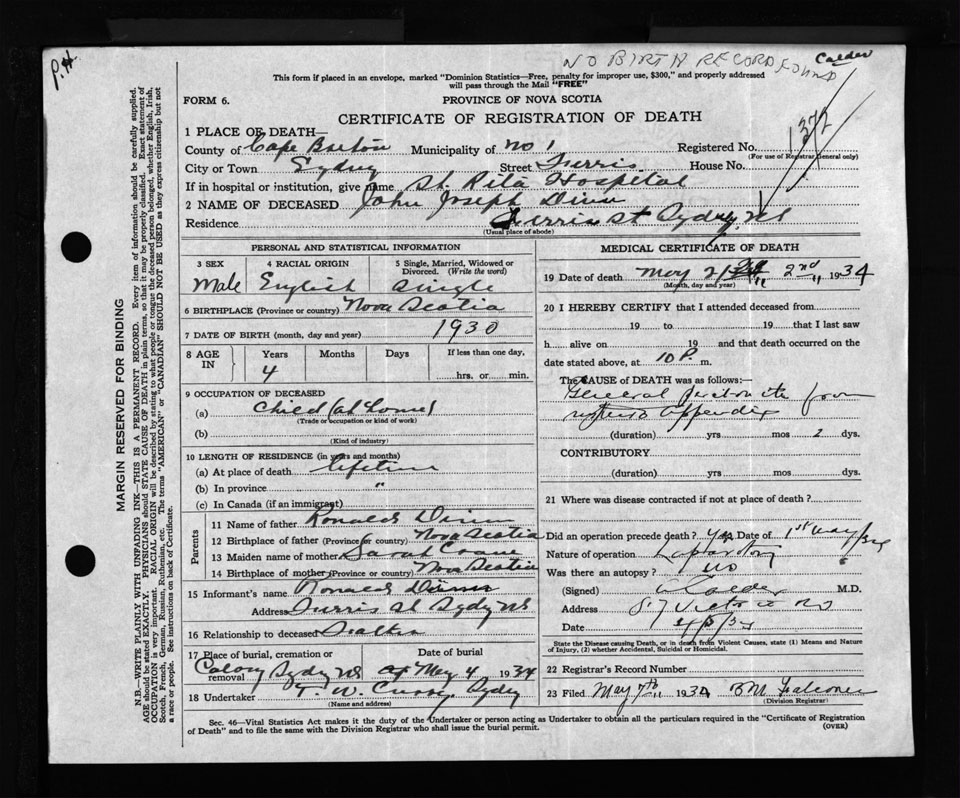 P.H.
NO BIRTH RECORD FOUND
Calder
This form if placed in an envelope, marked "Dominion Statistics—Free, penalty for improper use, $300," and properly addressed
will pass through the Mail "FREE"
FORM 6.
PROVINCE OF NOVA SCOTIA
CERTIFICATE OF REGISTRATION OF DEATH
1372
1 PLACE OF DEATH—
County of Cape Breton Municipality of No 1 Registered No.
(For use of Registrar General only)
City or Town Sydney Street Ferris House No.
If in hospital or institution, give name St. Rita Hospital
2 NAME OF DECEASED John Joseph Dinn
Residence Ferris St Sydney NS
(Usual place of abode)
PERSONAL AND STATISTICAL INFORMATION
3 SEX 4 RACIAL ORIGIN 5 Single, Married, Widowed or
Divorced. (Write the word)
Male English Single
6 BIRTHPLACE (Province or country) Nova Scotia
7 DATE OF BIRTH (month, day and year) 1930
8 AGE IN Years Months Days If less than one day,
4 hrs. or min.
9 OCCUPATION OF DECEASED
(a) Child (at home)
(Trade or occupation or kind of work)
(b)
(Kind of industry)
10 LENGTH OF RESIDENCE (in years and months)
(a) At place of death lifetime
(b) In province "
(c) In Canada (if an immigrant)
Parents
11 Name of father Ronald Dinn
12 Birthplace of father (Province or country) Nova Scotia
13 Maiden name of mother Sarah Crane
14 Birthplace of mother (Province or country) Nova Scotia
15 Informant's name Ronald Dinn
Address Ferris St Sydney NS
16 Relationship to deceased Father
17 Place of burial, cremation or removal Date of burial
Sydney NS May 4 1934
18 Undertaker T. W. Curry, Sydney
(Name and address)
MEDICAL CERTIFICATE OF DEATH
19 Date of death May 2nd 1934
(Month, day and year)
20 I HEREBY CERTIFY that I attended deceased from
19 to 19 that I last saw
h alive on 19 and that death occurred on the
date stated above, at 10 P. m.
The CAUSE OF DEATH was as follows:—
General Peritonitis from
ruptured appendix
(duration) yrs mos 2 dys.
CONTRIBUTORY
(duration) yrs mos dys.
21 Where was disease contracted if not at place of death ?
Did an operation precede death ? yes Date of 1st May/34
Nature of operation Laparotomy
Was there an autopsy ? no
(Signed) Calder M.D.
Address
Date 4/5/34
State the Disease causing Death, or in death from Violent Causes, state (1) Means and Nature
of Injury, (2) whether Accidental, Suicidal or Homicidal.
22 Registrar's Record Number
23 Filed May 7th 1934 B M Falconer
(Division Registrar)
Sec. 46—Vital Statistics Act makes it the duty of the Undertaker or person acting as Undertaker to obtain all the particulars required in the "Certificate of Registration
of Death" and to file the same with the Division Registrar who shall issue the burial permit.
(OVER)
MARGIN RESERVED FOR BINDING
N.B.—WRITE PLAINLY WITH UNFADING INK—THIS IS A PERMANENT RECORD. Every item of information should be carefully supplied.
AGE should be stated EXACTLY. PHYSICIANS should STATE CAUSE OF DEATH in plain terms, so that it may be properly classified. Exact statement of
OCCUPATION is very important. RACIAL ORIGIN will be described by stating to what people or tongue the deceased person belonged, whether English, Irish,
Scotch, French, German, Russian, Ruthenian, etc. The terms "AMERICAN" or "CANADIAN" SHOULD NOT BE USED as they express citizenship but not
a race or people. See instructions on back of Certificate.